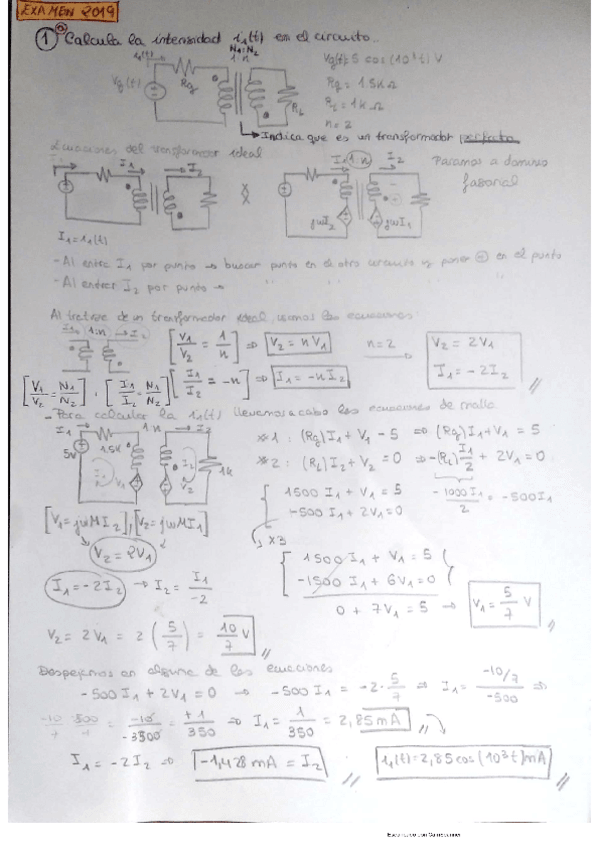 EXAMEN 2019
1 Calcula la intensidad i₁(t) en el circuito...
i₁(t) N₁:N₂
1:n
Vg(t) Rg RL
Vg(t)= 5 cos (10³t) V
Rg = 1.5k Ω
RL = 1k Ω
n = 2
Indica que es un transformador perfecto
Ecuaciones del transformador ideal
I₁ I₂ I₁ 1:n I₂
Pasamos a dominio
fasorial
jωI₂ jωI₁
I₁ = i₁(t)
- Al entrar I₁ por punto → buscar punto en el otro circuito y poner ⊕ en el punto
- Al entrar I₂ por punto → " " "
Al tratarse de un transformador ideal, usamos las ecuaciones:
1:n I₂
[V₁/V₂ = 1/n] ⇒ V₂ = n V₁ n = 2 V₂ = 2V₁
[V₁/V₂ = N₁/N₂], [I₁/I₂ = N₁/N₂] [I₁/I₂ = -n] ⇒ I₁ = -n I₂ I₁ = -2I₂
- Para calcular la i₁(t) llevamos a cabo las ecuaciones de malla
I₁ 1:n I₂
5V 1.5k I₁ V₁ I₂ V₂ 1k
*1 : (Rg)I₁ + V₁ - 5 ⇒ (Rg)I₁ + V₁ = 5
*2 : (RL)I₂ + V₂ = 0 ⇒ -(RL) I₁/2 + 2V₁ = 0
1500 I₁ + V₁ = 5
-500 I₁ + 2V₁ = 0
- 1000 I₁/2 = -500 I₁
[V₁ = jωM I₂], [V₂ = jωM I₁]
x3
V₂ = 2V₁
1500 I₁ + V₁ = 5
-1500 I₁ + 6V₁ = 0
I₁ = -2I₂ → I₂ = I₁/-2
0 + 7V₁ = 5 → V₁ = 5/7 V
V₂ = 2V₁ = 2 (5/7) = 10/7 V
Despejamos en alguna de las ecuaciones
-500 I₁ + 2V₁ = 0 → -500 I₁ = -2 · 5/7 ⇒ I₁ = -10/7 / -500 ⇒
= -10/-3500 = +1/350 ⇒ I₁ = 1/350 = 2,85 mA
I₁ = -2I₂ ⇒ -1,428 mA = I₂ i₁(t) = 2,85 cos (10³t) mA
Escaneado con CamScanner